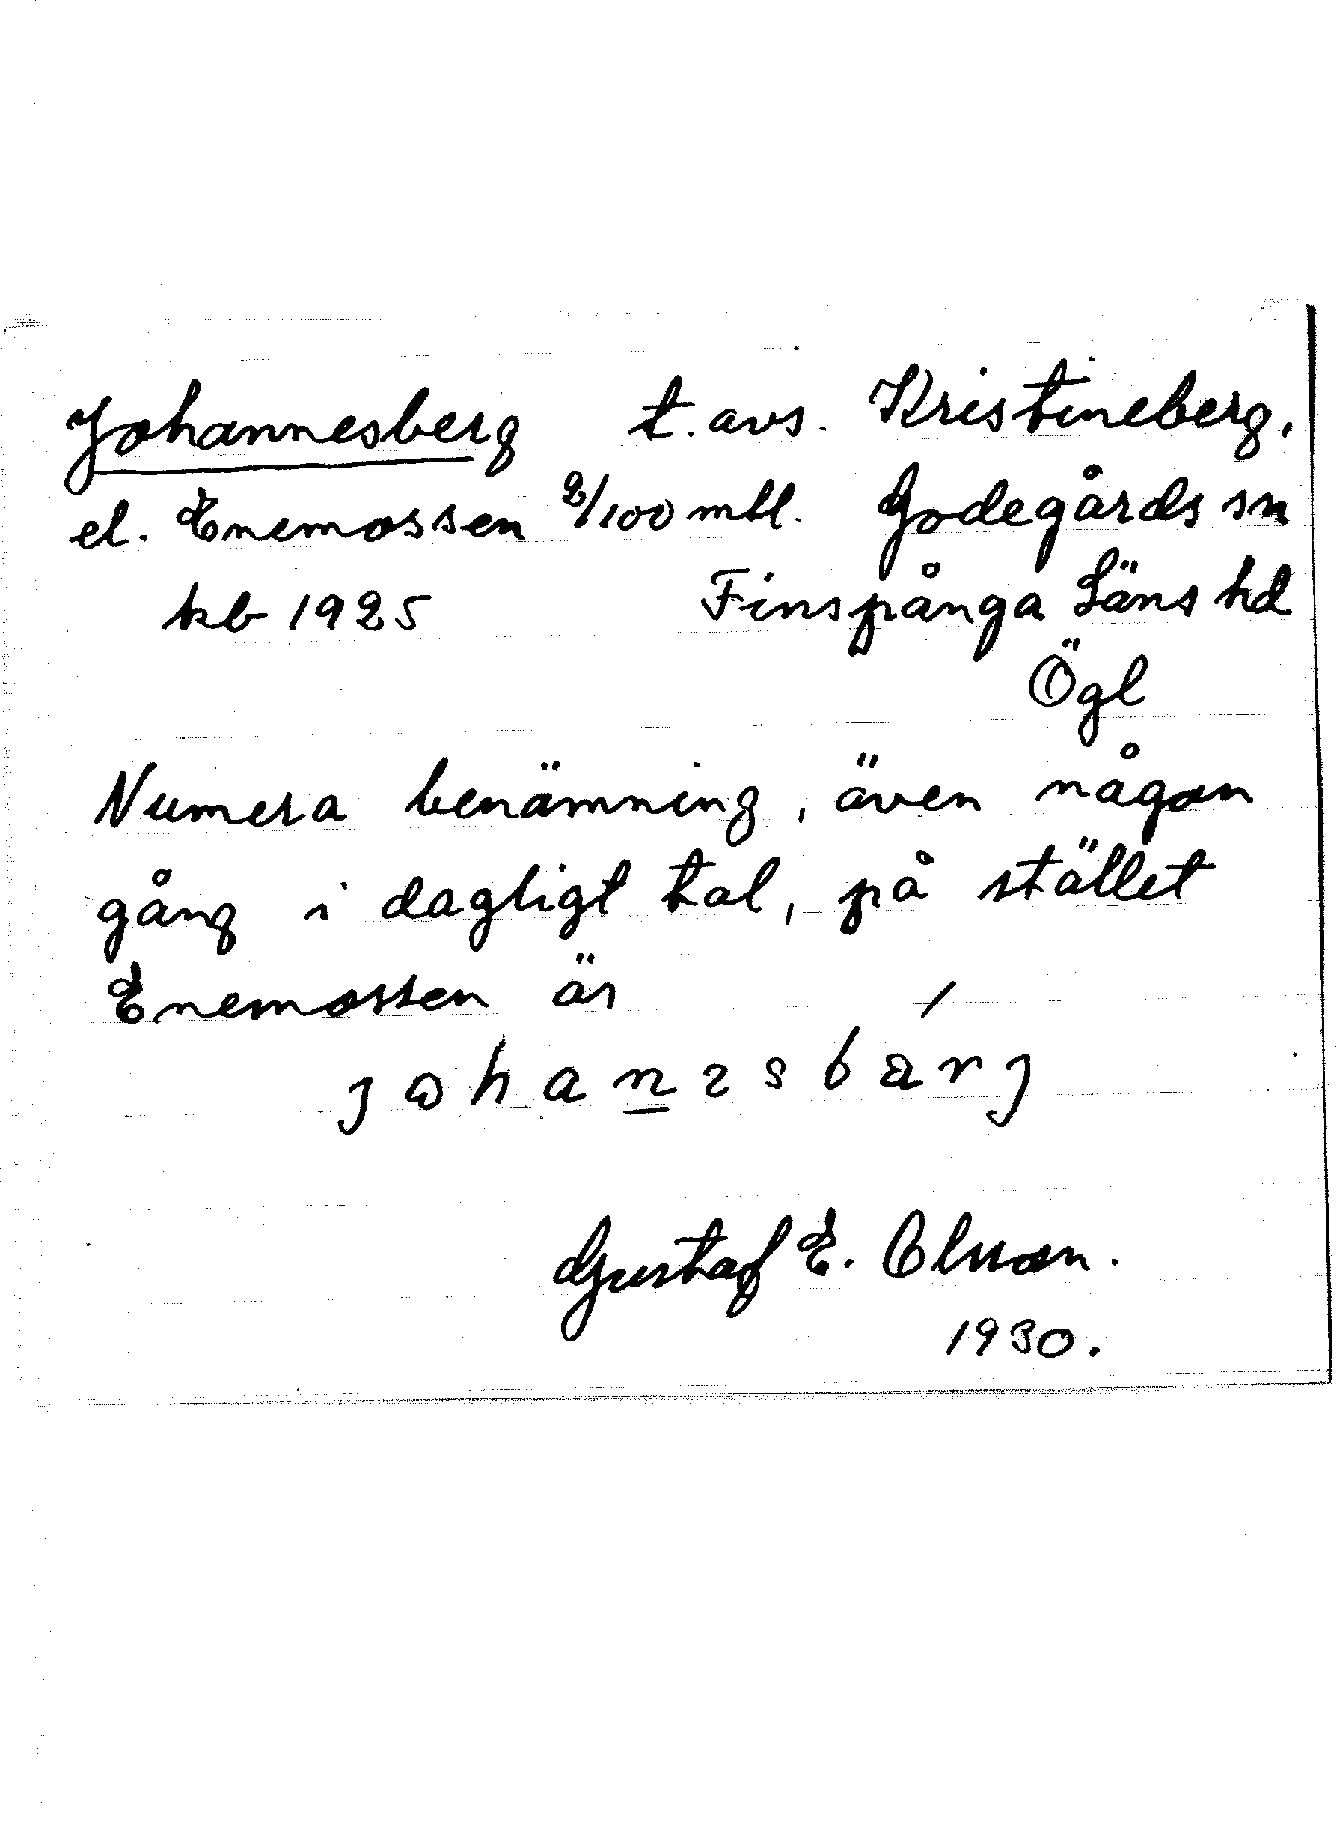 Johannesberg t. avs. Kristineberg,
el. Enemossen 2/100 mtl. Godegårds sn
kb 1925 Finspånga Läns hd
Ögl
Numera benämning, även någon
gång i dagligt tal, på stället
Enemossen är
Gustaf E. Olsson.
1930.